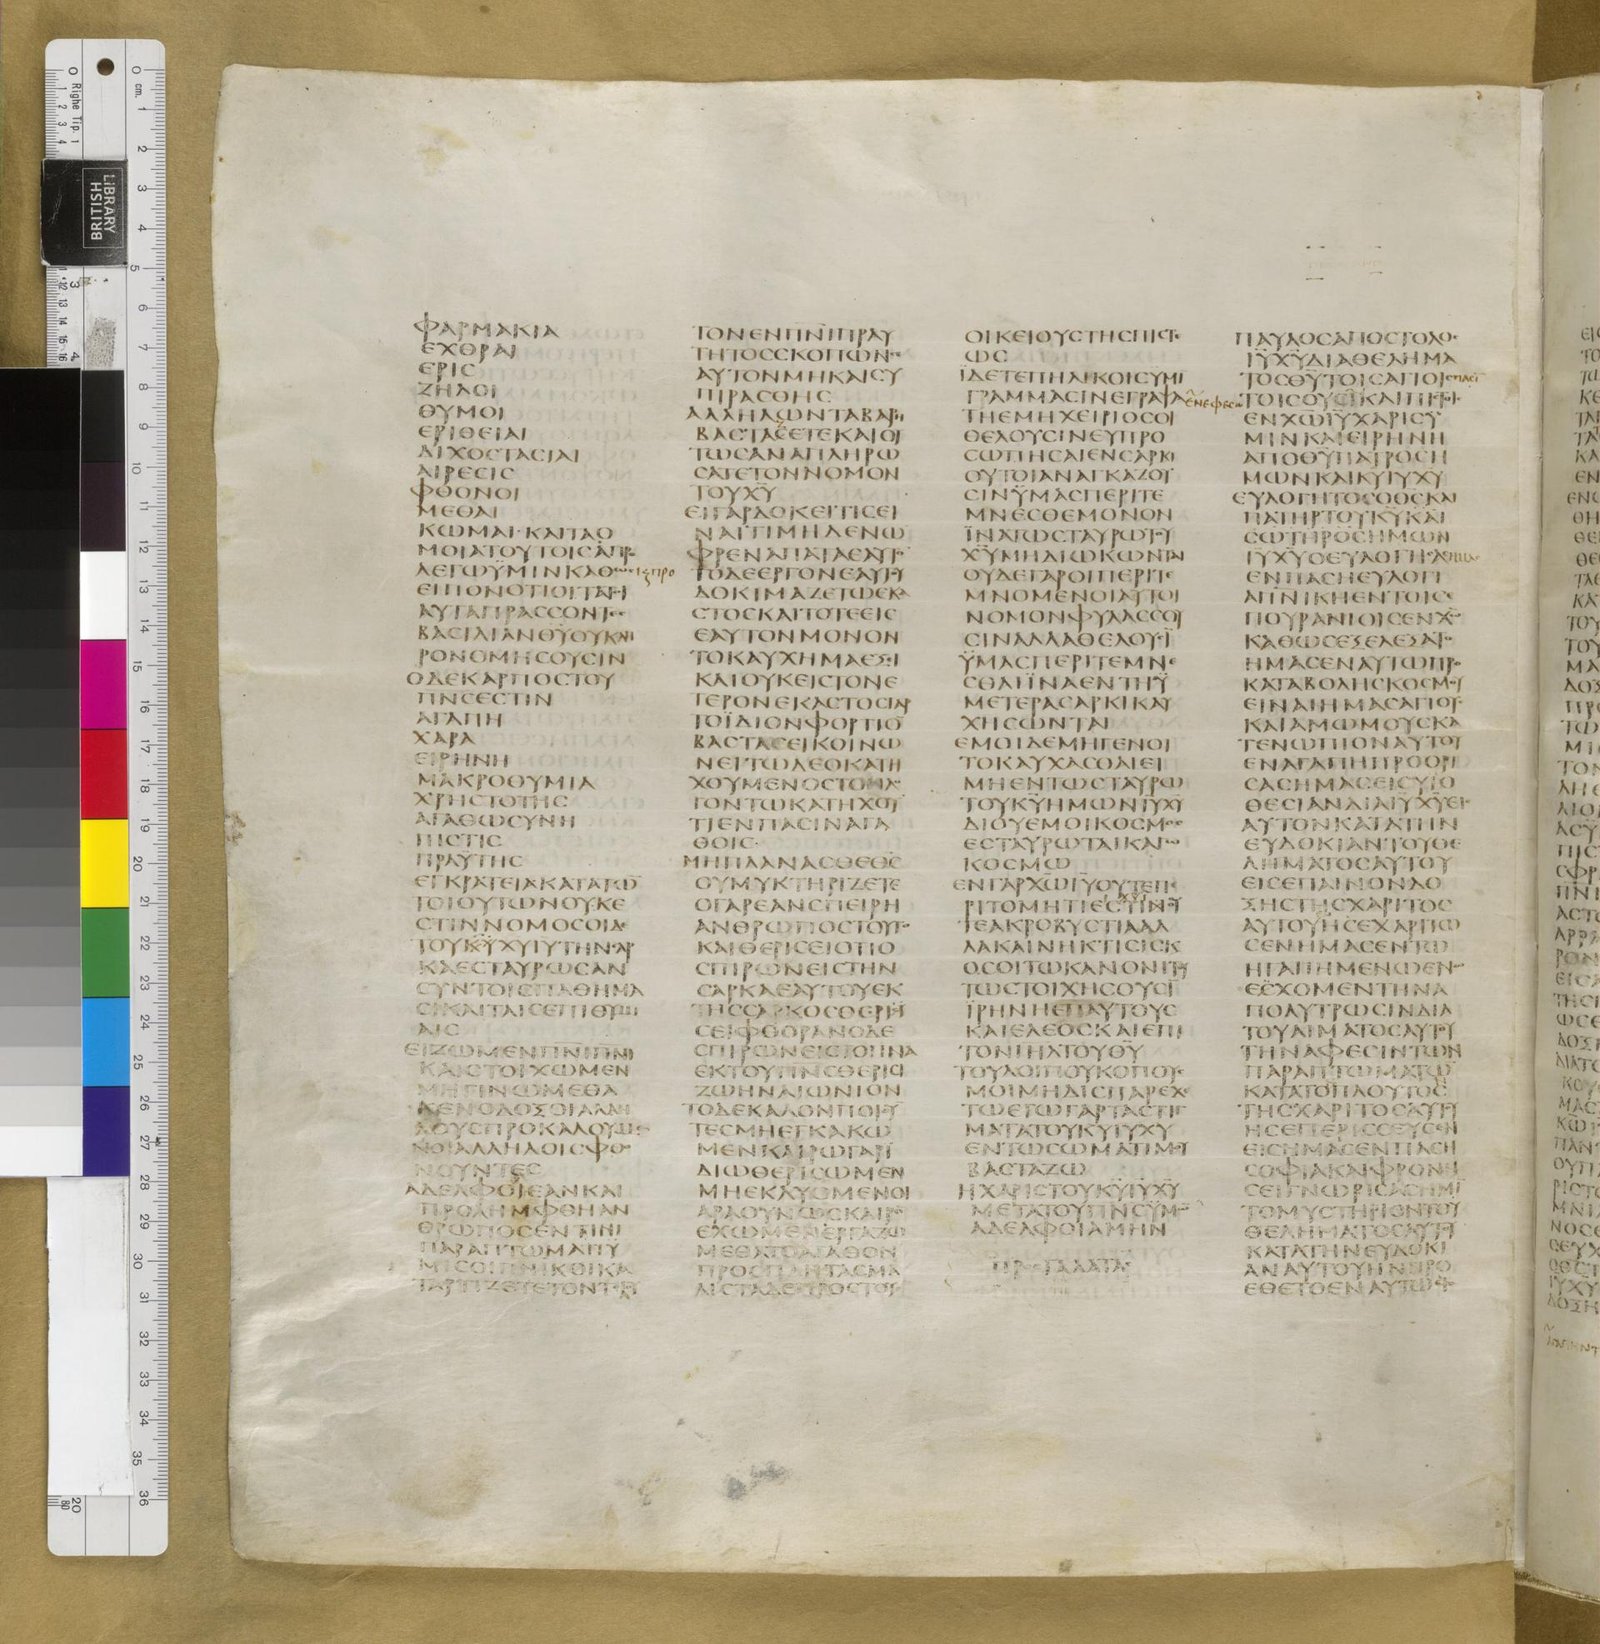 ΦΑΡΜΑΚΙΑ
ΕΧΘΡΑΙ
ΕΡΙC
ΖΗΛΟΙ
ΘΥΜΟΙ
ΕΡΙΘΕΙΑΙ
ΔΙΧΟCΤΑCΙΑΙ
ΑΙΡΕCΙC
ΦΘΟΝΟΙ
ΜΕΘΑΙ
ΚΩΜΑΙ·ΚΑΙΤΑΟ
ΜΟΙΑΤΟΥΤΟΙCΑΠΡ
ΛΕΓΩΫΜΙΝΚΑΘΩC
ΕΙΠΟΝΟΤΙΟΙΤΑΤΟΙ
ΑΥΤΑΠΡΑCCΟΝΤΕC
ΒΑCΙΛΙΑΝΘΥΟΥΚΛΗ
ΡΟΝΟΜΗCΟΥCΙΝ
ΟΔΕΚΑΡΠΟCΤΟΥ
ΠΝCΕCΤΙΝ
ΑΓΑΠΗ
ΧΑΡΑ
ΕΙΡΗΝΗ
ΜΑΚΡΟΘΥΜΙΑ
ΧΡΗCΤΟΤΗC
ΑΓΑΘΩCΥΝΗ
ΠΙCΤΙC
ΠΡΑΥΤΗC
ΕΓΚΡΑΤΕΙΑΚΑΤΑΤΩ
ΤΟΙΟΥΤΩΝΟΥΚΕ
CΤΙΝΝΟΜΟCΟΙΔΕ
ΤΟΥΚΥΧΥΙΥΤΗΝCΑΡ
ΚΑΕCΤΑΥΡΩCΑΝ
CΥΝΤΟΙCΠΑΘΗΜΑ
CΙΚΑΙΤΑΙCΕΠΙΘΥΜΙ
ΑΙC
ΕΙΖΩΜΕΝΠΝΙΠΝΙ
ΚΑΙCΤΟΙΧΩΜΕΝ
ΜΗΓΙΝΩΜΕΘΑ
ΚΕΝΟΔΟΞΟΙΑΛΛΗ
ΛΟΥCΠΡΟΚΑΛΟΥΜΕ
ΝΟΙΑΛΛΗΛΟΙCΦΘΟ
ΝΟΥΝΤΕC
ΑΔΕΛΦΟΙΕΑΝΚΑΙ
ΠΡΟΛΗΜΦΘΗΑΝ
ΘΡΩΠΟCΕΝΤΙΝΙ
ΠΑΡΑΠΤΩΜΑΤΙΥ
ΜΙCΟΙΠΝΙΚΟΙΚΑ
ΤΑΡΤΙΖΕΤΕΤΟΝΤΟΙΟΥ
ΤΟΝΕΝΠΝΙΠΡΑΥ
ΤΗΤΟCCΚΟΠΩΝCΕ
ΑΥΤΟΝΜΗΚΑΙCΥ
ΠΙΡΑCΘΗC
ΑΛΛΗΛΩΝΤΑΒΑΡΗ
ΒΑCΤΑCΕΤΕΚΑΙΟΥ
ΤΩCΑΝΑΠΛΗΡΩ
CΑΤΕΤΟΝΝΟΜΟΝ
ΤΟΥΧΥ
ΕΙΓΑΡΔΟΚΕΙΤΙCΕΙ
ΝΑΙΤΙΜΗΔΕΝΩ
ΦΡΕΝΑΠΑΤΑΕΑΥΤΟ
ΤΟΔΕΕΡΓΟΝΕΑΥΤΟΥ
ΔΟΚΙΜΑΖΕΤΩΕΚΑ
CΤΟCΚΑΙΤΟΤΕΕΙC
ΕΑΥΤΟΝΜΟΝΟΝ
ΤΟΚΑΥΧΗΜΑΕΞΕΙ
ΚΑΙΟΥΚΕΙCΤΟΝΕ
ΤΕΡΟΝΕΚΑCΤΟCΓΑΡ
ΤΟΪΔΙΟΝΦΟΡΤΙΟ
ΒΑCΤΑCΕΙΚΟΙΝΩ
ΝΕΙΤΩΔΕΟΚΑΤΗ
ΧΟΥΜΕΝΟCΤΟΝΛΟ
ΓΟΝΤΩΚΑΤΗΧΟΥ
ΤΙΕΝΠΑCΙΝΑΓΑ
ΘΟΙC·
ΜΗΠΛΑΝΑCΘΕΘC
ΟΥΜΥΚΤΗΡΙΖΕΤΕ
ΟΓΑΡΕΑΝCΠΕΙΡΗ
ΑΝΘΡΩΠΟCΤΟΥΤΟ
ΚΑΙΘΕΡΙCΕΙΟΤΙΟ
CΠΙΡΩΝΕΙCΤΗΝ
CΑΡΚΑΕΑΥΤΟΥΕΚ
ΤΗCCΑΡΚΟCΘΕΡΙ
CΕΙΦΘΟΡΑΝΟΔΕ
CΠΙΡΩΝΕΙCΤΟΠΝΑ
ΕΚΤΟΥΠΝCΘΕΡΙCΙ
ΖΩΗΝΑΙΩΝΙΟΝ
ΤΟΔΕΚΑΛΟΝΠΟΙΟΥ
ΤΕCΜΗΕΓΚΑΚΩ
ΜΕΝΚΑΙΡΩΓΑΡΙ
ΔΙΩΘΕΡΙCΩΜΕΝ
ΜΗΕΚΛΥΟΜΕΝΟΙ
ΑΡΑΟΥΝΩCΚΑΙΡΟΝ
ΕΧΩΜΕΝΕΡΓΑΖΩ
ΜΕΘΑΤΟΑΓΑΘΟΝ
ΠΡΟCΠΑΝΤΑCΜΑ
ΛΙCΤΑΔΕΠΡΟCΤΟΥC
ΟΙΚΕΙΟΥCΤΗCΠΙCΤΕ
ΩC
ΪΔΕΤΕΠΗΛΙΚΟΙCΥΜΙ
ΓΡΑΜΜΑCΙΝΕΓΡΑΨΑ
ΤΗΕΜΗΧΕΙΡΙΟCΟΙ
ΘΕΛΟΥCΙΝΕΥΠΡΟ
CΩΠΗCΑΙΕΝCΑΡΚΙ
ΟΥΤΟΙΑΝΑΓΚΑΖΟΥ
CΙΝΫΜΑCΠΕΡΙΤΕ
ΜΝΕCΘΕΜΟΝΟΝ
ΪΝΑΤΩCΤΑΥΡΩΤΟΥ
ΧΥΜΗΔΙΩΚΩΝΤΑΙ
ΟΥΔΕΓΑΡΟΙΠΕΡΙΤΕ
ΜΝΟΜΕΝΟΙΑΥΤΟΙ
ΝΟΜΟΝΦΥΛΑCCΟΥ
CΙΝΑΛΛΑΘΕΛΟΥCΙ
ΫΜΑCΠΕΡΙΤΕΜΝΕ
CΘΑΙΪΝΑΕΝΤΗΫ
ΜΕΤΕΡΑCΑΡΚΙΚΑΥ
ΧΗCΩΝΤΑΙ
ΕΜΟΙΔΕΜΗΓΕΝΟΙ
ΤΟΚΑΥΧΑCΘΑΙΕΙ
ΜΗΕΝΤΩCΤΑΥΡΩ
ΤΟΥΚΥΗΜΩΝΙΥΧΥ
ΔΙΟΥΕΜΟΙΚΟCΜΟC
ΕCΤΑΥΡΩΤΑΙΚΑΓΩ
ΚΟCΜΩ
ΕΝΓΑΡΧΩΙΥΟΥΤΕΠΕ
ΡΙΤΟΜΗΤΙΕCΤΙΝΟΥ
ΤΕΑΚΡΟΒΥCΤΙΑΑΛ
ΛΑΚΑΙΝΗΚΤΙCΙCΚ
ΟCΟΙΤΩΚΑΝΟΝΙΤΟΥ
ΤΩCΤΟΙΧΗCΟΥCΙ
ΪΡΗΝΗΕΠΑΥΤΟΥC
ΚΑΙΕΛΕΟCΚΑΙΕΠΙ
ΤΟΝΙΗΛΤΟΥΘΥ
ΤΟΥΛΟΙΠΟΥΚΟΠΟΥC
ΜΟΙΜΗΔΙCΠΑΡΕΧΕ
ΤΩΕΓΩΓΑΡΤΑCΤΙΓ
ΜΑΤΑΤΟΥΚΥΙΥΧΥ
ΕΝΤΩCΩΜΑΤΙΜΟΥ
ΒΑCΤΑΖΩ
ΗΧΑΡΙCΤΟΥΚΥΙΥΧΥ
ΜΕΤΑΤΟΥΠΝCΥΜΩ
ΑΔΕΛΦΟΙΑΜΗΝ
ΠΡΟCΓΑΛΑΤΑC
ΠΑΥΛΟCΑΠΟCΤΟΛΟC
ΙΥΧΥΔΙΑΘΕΛΗΜΑ
ΤΟCΘΥΤΟΙCΑΓΙΟΙC
ΕΝΕΦΕCΩ
ΤΟΙCΟΥCΙΚΑΙΠΙCΤΟΙC
ΕΝΧΩΙΥΧΑΡΙCΥ
ΜΙΝΚΑΙΕΙΡΗΝΗ
ΑΠΟΘΥΠΑΤΡΟCΗ
ΜΩΝΚΑΙΚΥΙΥΧΥ
ΕΥΛΟΓΗΤΟCΟΘCΚΑΙ
ΠΑΤΗΡΤΟΥΚΥΚΑΙ
CΩΤΗΡΟCΗΜΩΝ
ΙΥΧΥΟΕΥΛΟΓΗCΑC
ΕΝΠΑCΗΕΥΛΟΓΙ
ΑΠΝΙΚΗΕΝΤΟΙCΕ
ΠΟΥΡΑΝΙΟΙCΕΝΧΩ
ΚΑΘΩCΕΞΕΛΕΞΑΤΟ
ΗΜΑCΕΝΑΥΤΩΠΡΟ
ΚΑΤΑΒΟΛΗCΚΟCΜΟΥ
ΕΙΝΑΙΗΜΑCΑΓΙΟΥC
ΚΑΙΑΜΩΜΟΥCΚΑ
ΤΕΝΩΠΙΟΝΑΥΤΟΥ
ΕΝΑΓΑΠΗΠΡΟΟΡΙ
CΑCΗΜΑCΕΙCΥΙΟ
ΘΕCΙΑΝΔΙΑΙΥΧΥΕΙC
ΑΥΤΟΝΚΑΤΑΤΗΝ
ΕΥΔΟΚΙΑΝΤΟΥΘΕ
ΛΗΜΑΤΟCΑΥΤΟΥ
ΕΙCΕΠΑΙΝΟΝΔΟ
ΞΗCΤΗCΧΑΡΙΤΟC
ΑΥΤΟΥΗCΕΧΑΡΙΤΩ
CΕΝΗΜΑCΕΝΤΩ
ΗΓΑΠΗΜΕΝΩΕΝΩ
ΕCΧΟΜΕΝΤΗΝΑ
ΠΟΛΥΤΡΩCΙΝΔΙΑ
ΤΟΥΑΙΜΑΤΟCΑΥΤΟΥ
ΤΗΝΑΦΕCΙΝΤΩΝ
ΠΑΡΑΠΤΩΜΑΤΩ
ΚΑΤΑΤΟΠΛΟΥΤΟC
ΤΗCΧΑΡΙΤΟCΑΥΤΟΥ
ΗCΕΠΕΡΙCCΕΥCΕΝ
ΕΙCΗΜΑCΕΝΠΑCΗ
CΟΦΙΑΚΑΙΦΡΟΝΗ
CΕΙΓΝΩΡΙCΑCΗΜΙ
ΤΟΜΥCΤΗΡΙΟΝΤΟΥ
ΘΕΛΗΜΑΤΟCΑΥΤΟΥ
ΚΑΤΑΤΗΝΕΥΔΟΚΙ
ΑΝΑΥΤΟΥΗΝΠΡΟ
ΕΘΕΤΟΕΝΑΥΤΩ
LIBRARY
BRITISH